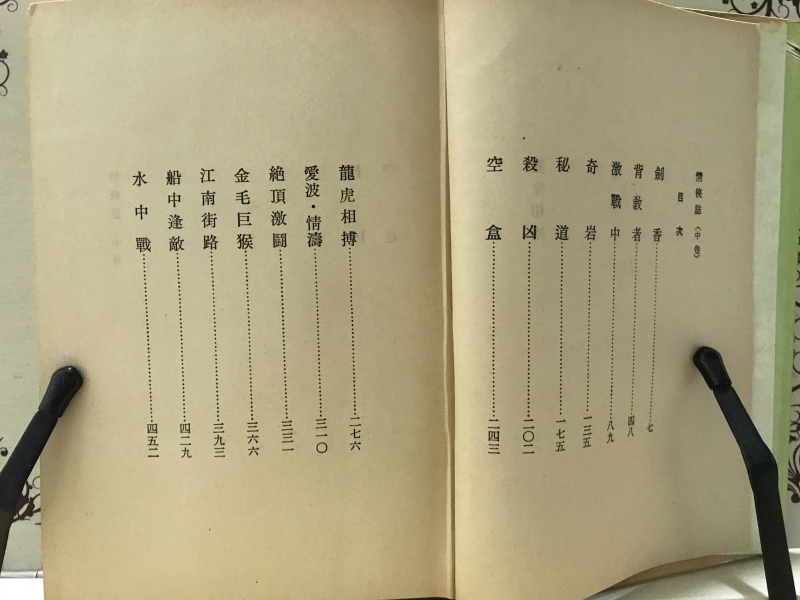 情俠誌（中卷）
目次
劍香……七
背敎者……四八
激戰中……八九
奇岩……一三五
秘道……一七五
殺凶……二〇二
空盒……二四三
龍虎相搏……二七六
愛波・情濤……三一〇
絕頂激鬪……三三一
金毛巨猴……三六六
江南街路……三九三
船中逢敵……四二九
水中戰……四五二